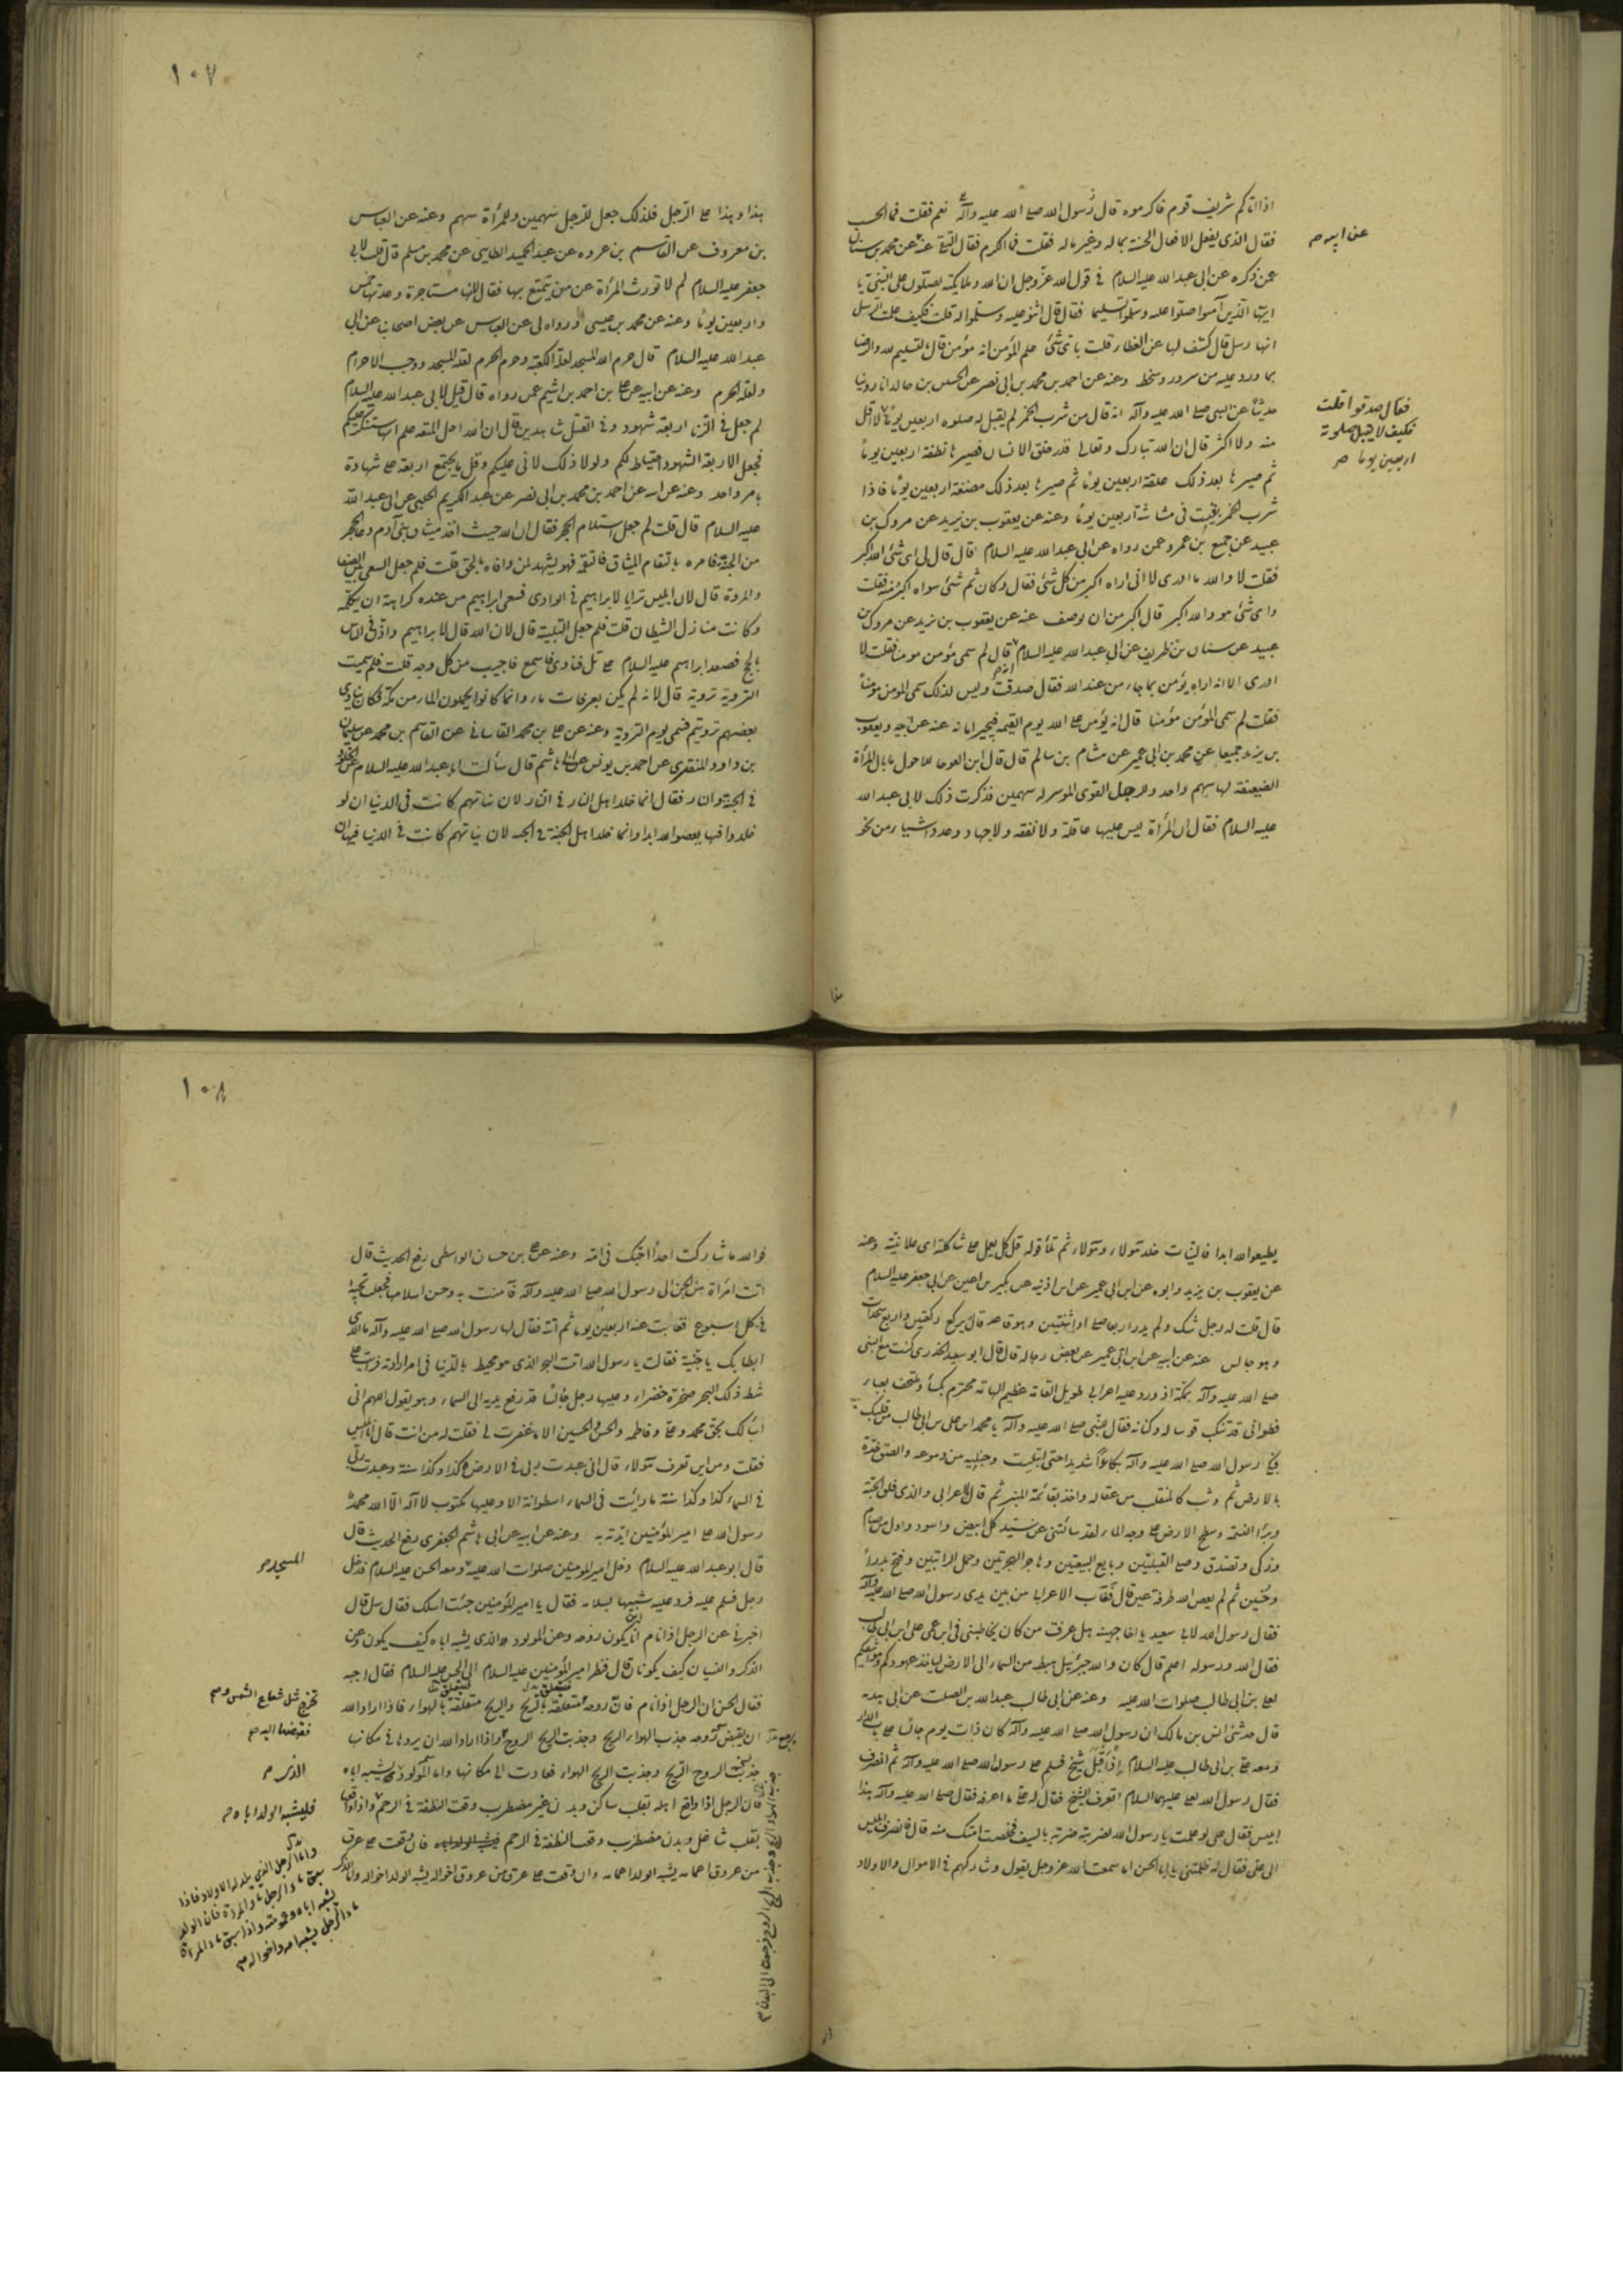 اذا اتاكم شريف قوم فاكرموه قال رسول الله صلى الله عليه وآله نعم فقلت فما الحسب
فقال الذي يفعل الافعال الحسنة بماله وغير ماله فقلت فما الكرم فقال التقى عنه عن محمد بن سنان
عن ابيه م
عمن ذكره عن ابى عبد الله عليه السلام في قول الله عز وجل ان الله وملايكته يصلون على النبي يا
ايها الذين آمنوا صلوا عليه وسلموا تسليما فقال قال اثنوا عليه وسلموا له قلت فكيف علمت الرسل
انها رسل قال كشف لها عن الغطاء قلت باى شئ علم المؤمن انه مؤمن قال بالتسليم لله والرضا
بما ورد عليه من سرور وسخط وعنه عن احمد بن محمد بن ابى نصر عن الحسين بن خالد انا روينا
حديثا عن النبي صلى الله عليه وآله انه قال من شرب الخمر لم يقبل له صلوة اربعين يوما لا اقل
فقال صدقوا فقلت
فكيف لا يقبل صلوته
اربعين يوما م
منه ولا اكثر قال ان الله تبارك وتعالى قدر خلق الانسان فصيرها نطفة اربعين يوما
ثم صيرها بعد ذلك علقة اربعين يوما ثم صيرها بعد ذلك مضغة اربعين يوما فاذا
شرب الخمر بقيت في مشاشه اربعين يوما وعنه عن يعقوب بن يزيد عن مروك بن
عبيد عن جميع بن عمرو عمن رواه عن ابى عبد الله عليه السلام قال قال لي اى شئ الله اكبر
فقلت لا والله ما ادرى الا انى اراه اكبر من كل شئ فقال وكان ثم شئ سواه اكبر منه فقلت
واى شئ هو والله اكبر قال اكبر من ان يوصف عنه عن يعقوب بن يزيد عن مروك بن
عبيد عن سنان بن طريف عن ابى عبد الله عليه السلام قال لم سمى مؤمن مومنا فقلت لا
ادرى الا انه اراه يؤمن بما جاء من عند الله فقال صدقت وليس لذلك سمى المؤمن مؤمنا
فقلت لم سمى المؤمن مؤمنا قال انه يؤمن على الله يوم القيمة فيجيز امانه عنه عن ابيه ويعقوب
بن يزيد جميعا عن محمد بن ابى عمير عن هشام بن سالم قال قال ابن ابى العوجا للاحول ما بال المرأة
الضعيفة لها سهم واحد وللرجل القوى الموسر له سهمين فذكرت ذلك لابى عبد الله
عليه السلام فقال ان المرأة ليس عليها عاقلة ولا نفقة ولا جهاد وعدد اشياء من نحو
هذا
١٠٧
هذا وهذا على الرجل فلذلك جعل للرجل سهمين وللمرأة سهم وعنه عن العباس
بن معروف عن القاسم بن عروه عن عبد الحميد الطايى عن محمد بن مسلم قال قلت لابى
جعفر عليه السلام لم لا تورث المرأة عن من يتمتع بها فقال لانها مستاجرة وعدتها خمس
واربعين يوما وعنه عن محمد بن عيسى ورواه لى عن العباس عن بعض اصحابنا عن ابى
عبد الله عليه السلام قال حرم الله المسجد لعلة الكعبة وحرم الحرم لعلة المسجد ووجب الاحرام
لعلة الحرم وعنه عن ابيه عن على بن احمد بن اشيم عمن رواه قال قيل لابى عبد الله عليه السلام
لم جعل في الزنا اربعة شهود وفي القتل شاهدين قال ان الله احل المتعة علم انها ستنكر عليكم
فجعل الاربعة الشهود احتياطا لكم ولولا ذلك لاتى عليكم وقل ما يجتمع اربعة على شهادة
بامر واحد وعنه عن ابيه عن احمد بن محمد بن ابى نصر عن عبد الكريم الحلبى عن ابى عبد الله
عليه السلام قال قلت لم جعل استلام الحجر فقال ان الله حيث اخذ ميثاق بنى آدم دعا الحجر
من الجنة فامره بالتقام الميثاق فالتقمه فهو يشهد لمن وافاه بالحق قلت فلم جعل السعي بين الصفا
والمروة قال لان ابليس ترايا لابراهيم في الوادى فسعى ابراهيم من عنده كراهة ان يكلمه
وكانت منازل الشيطان قلت فلم جعل التلبية قال لان الله قال لابراهيم واذن في الناس
بالحج فصعد ابراهيم عليه السلام على تل فنادى فاسمع فاجيب من كل وجه قلت فلم سميت
التروية تروية قال لانه لم يكن بعرفات ماء وانما كانوا يحملون الماء من مكة فكان ينادى
بعضهم ترويتم فسمى يوم التروية وعنه عن على بن محمد القاسانى عن القاسم بن محمد عن سليمان
بن داود المنقرى عن احمد بن يونس عن ابى هاشم قال سألت ابا عبد الله عليه السلام عن الخلود
في الجنة والنار فقال انما خلد اهل النار في النار لان نياتهم كانت في الدنيا ان لو
خلدوا فيها يعصوا الله ابدا وانما خلد اهل الجنة في الجنة لان نياتهم كانت في الدنيا فيها ان
يطيعوا الله ابدا فالنيات خلد هؤلاء وهؤلاء ثم تلا قوله قل كل يعمل على شاكلته اى على نيته وعنه
عن يعقوب بن يزيد وابوه عن ابن ابى عمير عن ابن اذينة عن بكير بن اعين عن ابى جعفر عليه السلام
قال قلت له رجل شك ولم يدر اربعا صلى او اثنتين وهو قاعد قال يركع ركعتين واربع سجدات
وهو جالس عنه عن ابيه عن ابن ابى عمير عن بعض رجاله قال قال ابو سعيد الخدرى كنت مع النبى
صلى الله عليه وآله بمكة اذ ورد عليه اعرابى طويل القامة عظيم الهامة محتزم بكساء وملتحف بعباء
قطوانى قد تنكب قوسا له وكنانة فقال للنبى صلى الله عليه وآله يا محمد اين على بن ابى طالب من قلبك
فبكى رسول الله صلى الله عليه وآله بكاءا شديدا حتى ابتلت وجنتيه من دموعه والصق خده
بالارض ثم وثب كالمنفلت من عقاله واخذ بقائمة المنبر ثم قال يا اعرابى والذى فلق الحبة
وبرأ النسمة وسطح الارض على وجه الماء لقد سألتنى عن سيد كل ابيض واسود واول من صام
وزكى وتصدق وصلى القبلتين وبايع البيعتين وهاجر الهجرتين وحمل الرايتين وفتح بدرا
وحنين ثم لم يعص الله طرفة عين قال فغاب الاعرابى من بين يدى رسول الله صلى الله عليه وآله
فقال رسول الله لابى سعيد يا اخا جهينة هل عرفت من كان يخاطبنى في ابن عمى على بن ابى طالب
فقال الله ورسوله اعلم قال كان والله جبرئيل هبط من السماء الى الارض لياخذ عهودكم ومواثيقكم
لعلى بن ابى طالب صلوات الله عليه وعنه عن ابى طالب عبد الله بن الصلت عن ابى هدبة
قال حدثنى انس بن مالك ان رسول الله صلى الله عليه وآله كان ذات يوم جالسا على باب الدار
ومعه على بن ابى طالب عليه السلام اذ اقبل شيخ فسلم على رسول الله صلى الله عليه وآله ثم انصرف
فقال رسول الله لعلى عليهما السلام اتعرف الشيخ فقال له على ما اعرفه فقال صلى الله عليه وآله هذا
ابليس فقال على لو علمت يا رسول الله لضربته ضربة بالسيف فخلصت امتك منه قال فانصرف ابليس
الى على فقال له ظلمتنى يا ابا الحسن اما سمعت الله عز وجل يقول وشاركهم في الاموال والاولاد
١٠٨
فوالله ما شاركت احدا احبك في امه وعنه عن على بن حسان الواسطى رفع الحديث قال
اتت امرأة من الجن الى رسول الله صلى الله عليه وآله فآمنت به وحسن اسلامها فجعلت تجيئه
في كل اسبوع فغابت عنه اربعين يوما ثم اتته فقال لها رسول الله صلى الله عليه وآله ما الذى
ابطأ بك يا جنية فقالت يا رسول الله اتيت البحر الذى هو محيط بالدنيا في امر اردته فرأيت على
شط ذلك البحر صخرة خضراء وعليها رجل جالس قد رفع يديه الى السماء وهو يقول اللهم انى
اسألك بحق محمد وعلى وفاطمه والحسن والحسين الا ما غفرت لى فقلت له من انت قال انا ابليس
فقلت ومن اين تعرف هؤلاء قال انى عبدت ربى في الارض كذا وكذا سنة وعبدت ربى
في السماء كذا وكذا سنة ما رأيت في السماء اسطوانة الا وعليها مكتوب لا اله الا الله محمد
رسول الله على امير المؤمنين ايدته به وعنه عن ابيه عن ابى هاشم الجعفرى رفع الحديث قال
قال ابو عبد الله عليه السلام دخل امير المومنين صلوات الله عليه ومعه الحسن عليه السلام فدخل
المسجد م
رجل فسلم عليه فرد عليه شبيها بسلامه فقال يا امير المؤمنين جئت اسئلك فقال سل قال
اخبرنى عن الرجل اذا نام اين يكون روحه وعن المولود الذى يشبه اباه كيف يكون وعن
الذكر والنسيان كيف يكونان قال فنظر امير المؤمنين عليه السلام الى الحسن عليه السلام فقال اجبه
فقال الحسن ان الرجل اذا نام فان روحه متعلقة بالريح والريح متعلقة بالهواء فاذا اراد الله
تخرج مثل شعاع الشمس م
ان يقبض روحه جذب الهواء الريح وجذبت الريح الروح واذا اراد الله ان يردها في مكانها
فقبضها اليه م
جذبت الروح الريح وجذبت الريح الهواء فعادت الى مكانها واما المولود يشبه اباه
الذى م
فان الرجل اذا واقع اهله بقلب ساكن وبدن غير مضطرب وقعت النطفة في الرحم واذا واقعها
فليشبه الولد اباه م
بقلب شاغل وبدن مضطرب وقعت النطفة في الرحم فان وقعت على عرق
من عروق اعمامه يشبه الولد اعمامه وان وقعت على عرق من عروق اخواله يشبه الولد اخواله واما الذكر
واما الرجل الذى يلد له الاولاد فاذا
سبق ماء الرجل ماء المرءة فان الولد
يشبه اباه وعمومته واذا سبق ماء المرءة
ماء الرجل يشبه امه واخواله م